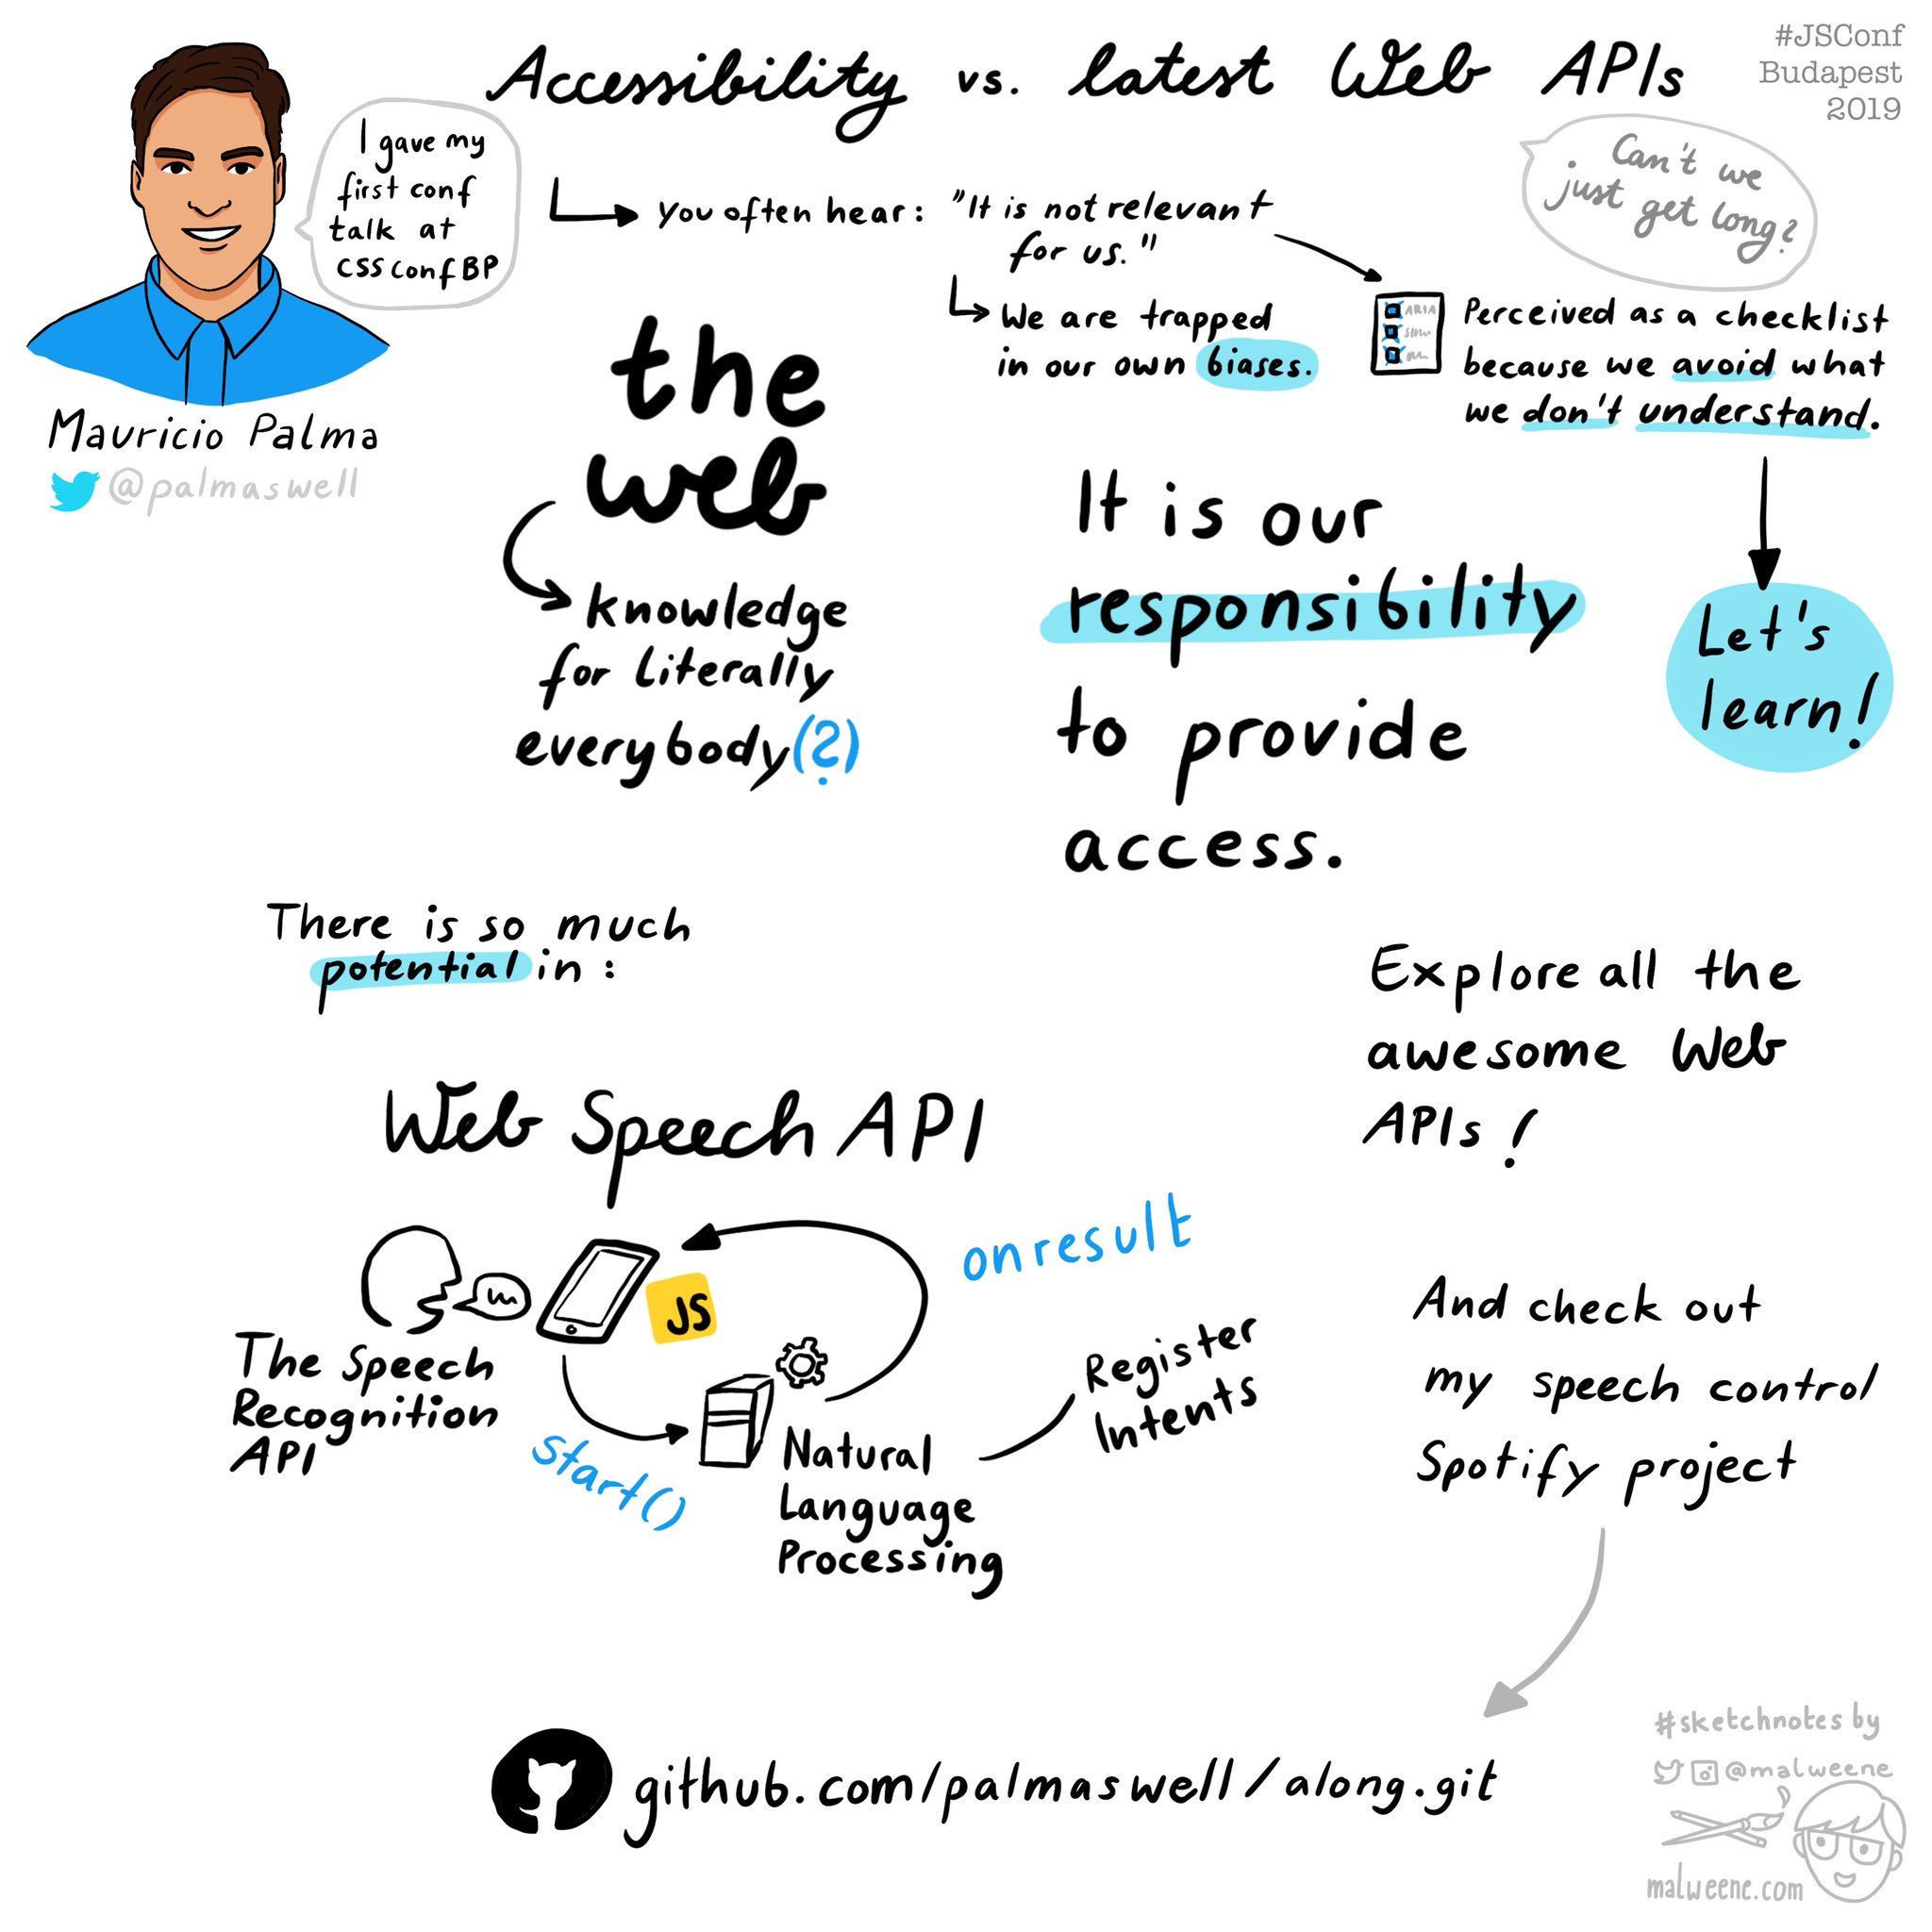 #JSConf
Budapest
2019
Accessibility vs. latest Web APIs
Can't we
just get long?
I gave my
first conf
talk at
CSSconfBP
Mauricio Palma
@palmaswell
you often hear:
"It is not relevant
for us."
We are trapped
in our own biases.
ARIA
Perceived as a checklist
because we avoid what
we don't understand.
Let's
learn!
the
web
knowledge
for literally
everybody(?)
It is our
responsibility
to provide
access.
There is so much
potential in:
Web Speech API
The Speech
Recognition
API
JS
start()
onresult
Natural
Language
Processing
Register
Intents
Explore all the
awesome Web
APIs!
And check out
my speech control
Spotify project
github.com/palmaswell/along.git
#sketchnotes by
@malweene
malweene.com